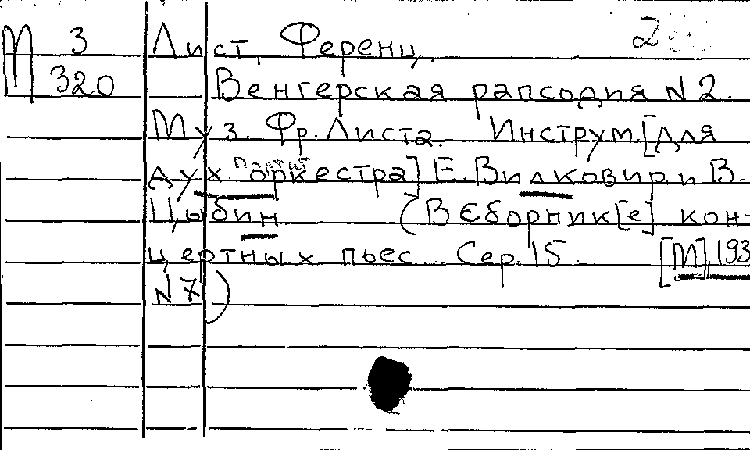 М 3 Лист, Ференц. 2
320 Венгерская рапсодия N 2.
Муз. Фр. Листа. Инструм. [для
дух. оркестра] Е. Вилковир и В.
Цыбин (В сборник[е] кон-
цертных пьес. Сер. 15. [М], 193
N 7)